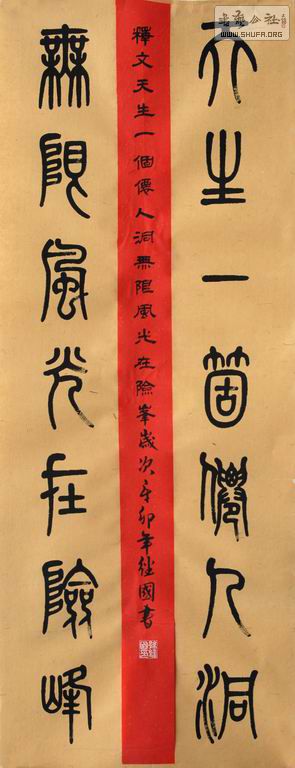 书法公社
WWW.SHUFA.ORG
天生一箇僊人洞
無限風光在險峰
釋文天生一個僊人洞無限風光在險峯歲次辛卯年繼國書